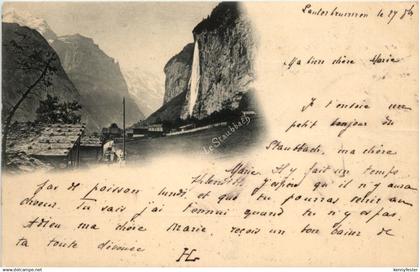 Lauterbrunnen le 27
Ma bien chère Marie
Je t'envoie un
petit bonjour du
Staubbach, ma chère
Le Staubbach
Marie. Il y fait un temps
j'espère qu'il n'y aura
pas de poisson lundi et que tu pourras venir au
choeur. Tu sais j'ai l'ennui quand tu n'y es pas.
Adieu ma chère Marie, reçois un bon baiser de
ta toute dévouée
HL
www.delcampe.net
kennyfester